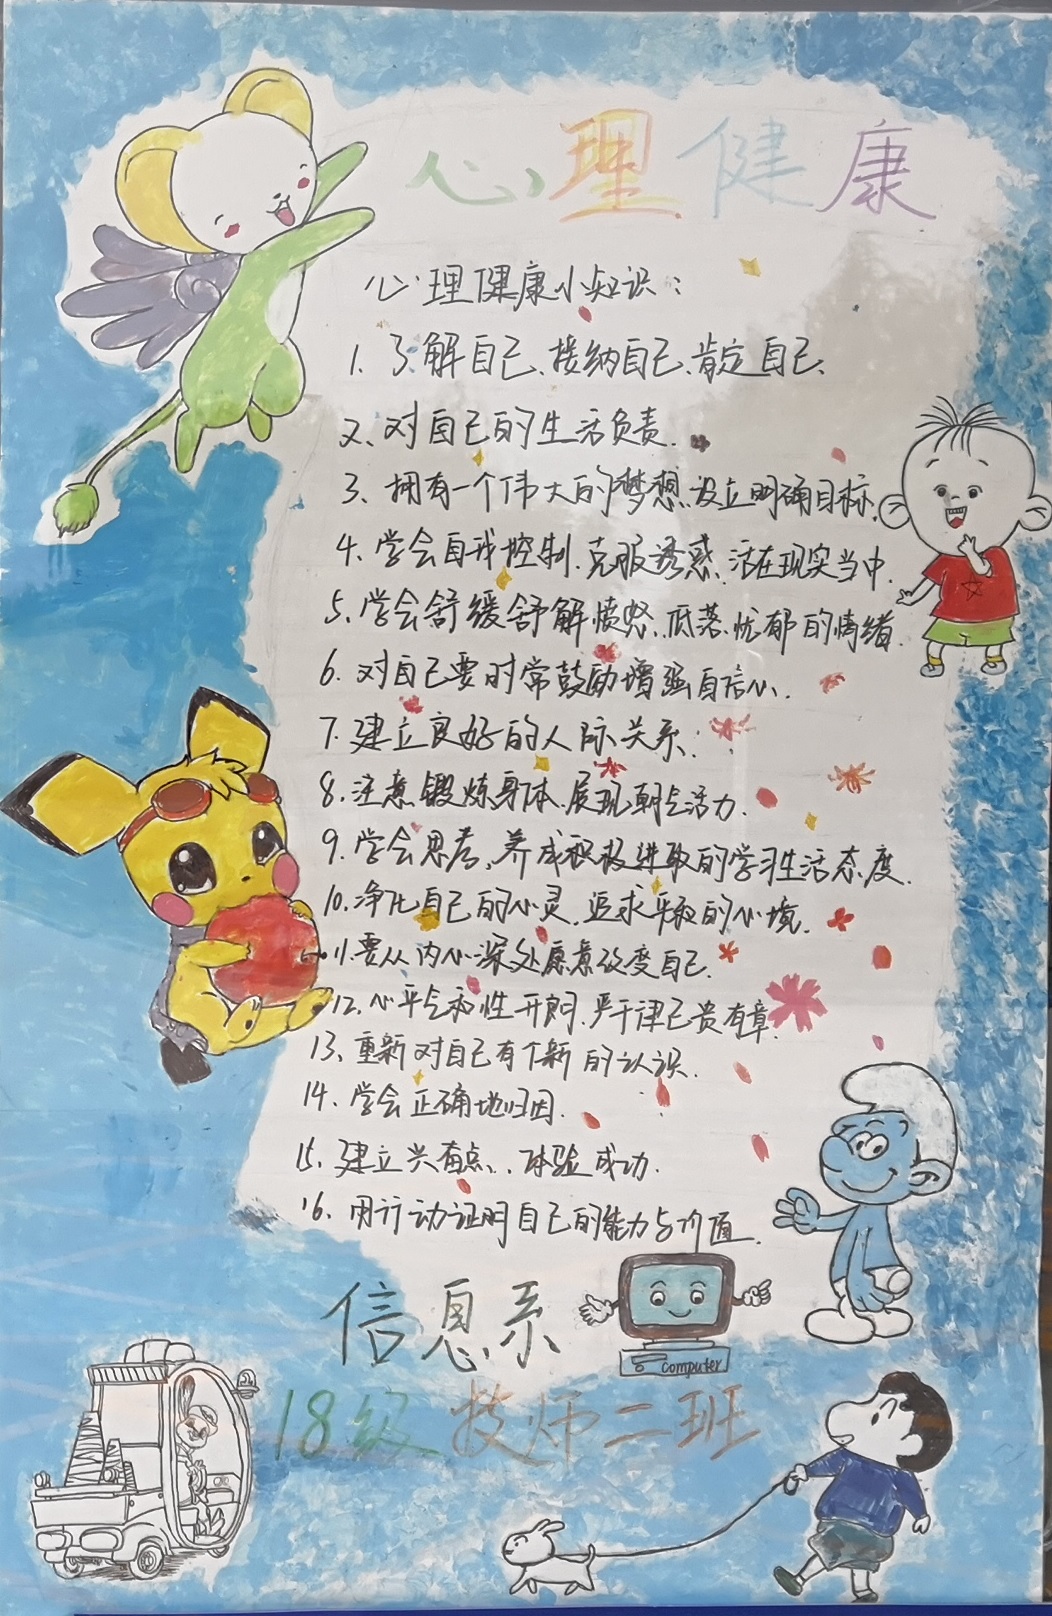 心理健康
心理健康小知识：
1、了解自己、接纳自己、肯定自己、
2、对自己的生活负责.
3、拥有一个伟大的梦想、设立明确目标、
4、学会自我控制、克服诱惑、活在现实当中.
5、学会舒缓舒解愤怒、低落、忧郁的情绪.
6、对自己要时常鼓励增强自信心.
7、建立良好的人际关系.
8、注意锻炼身体、展现朝气活力.
9、学会思考、养成积极进取的学习生活态度.
10、净化自己的心灵、追求平和的心境.
11、要从内心深处愿意改变自己.
12、心平气和性开朗、严于律己贵有章.
13、重新对自己有个新的认识.
14、学会正确地归因.
15、建立兴奋点、体验成功.
16、用行动证明自己的能力与价值.
信息系
computer
18级技师二班